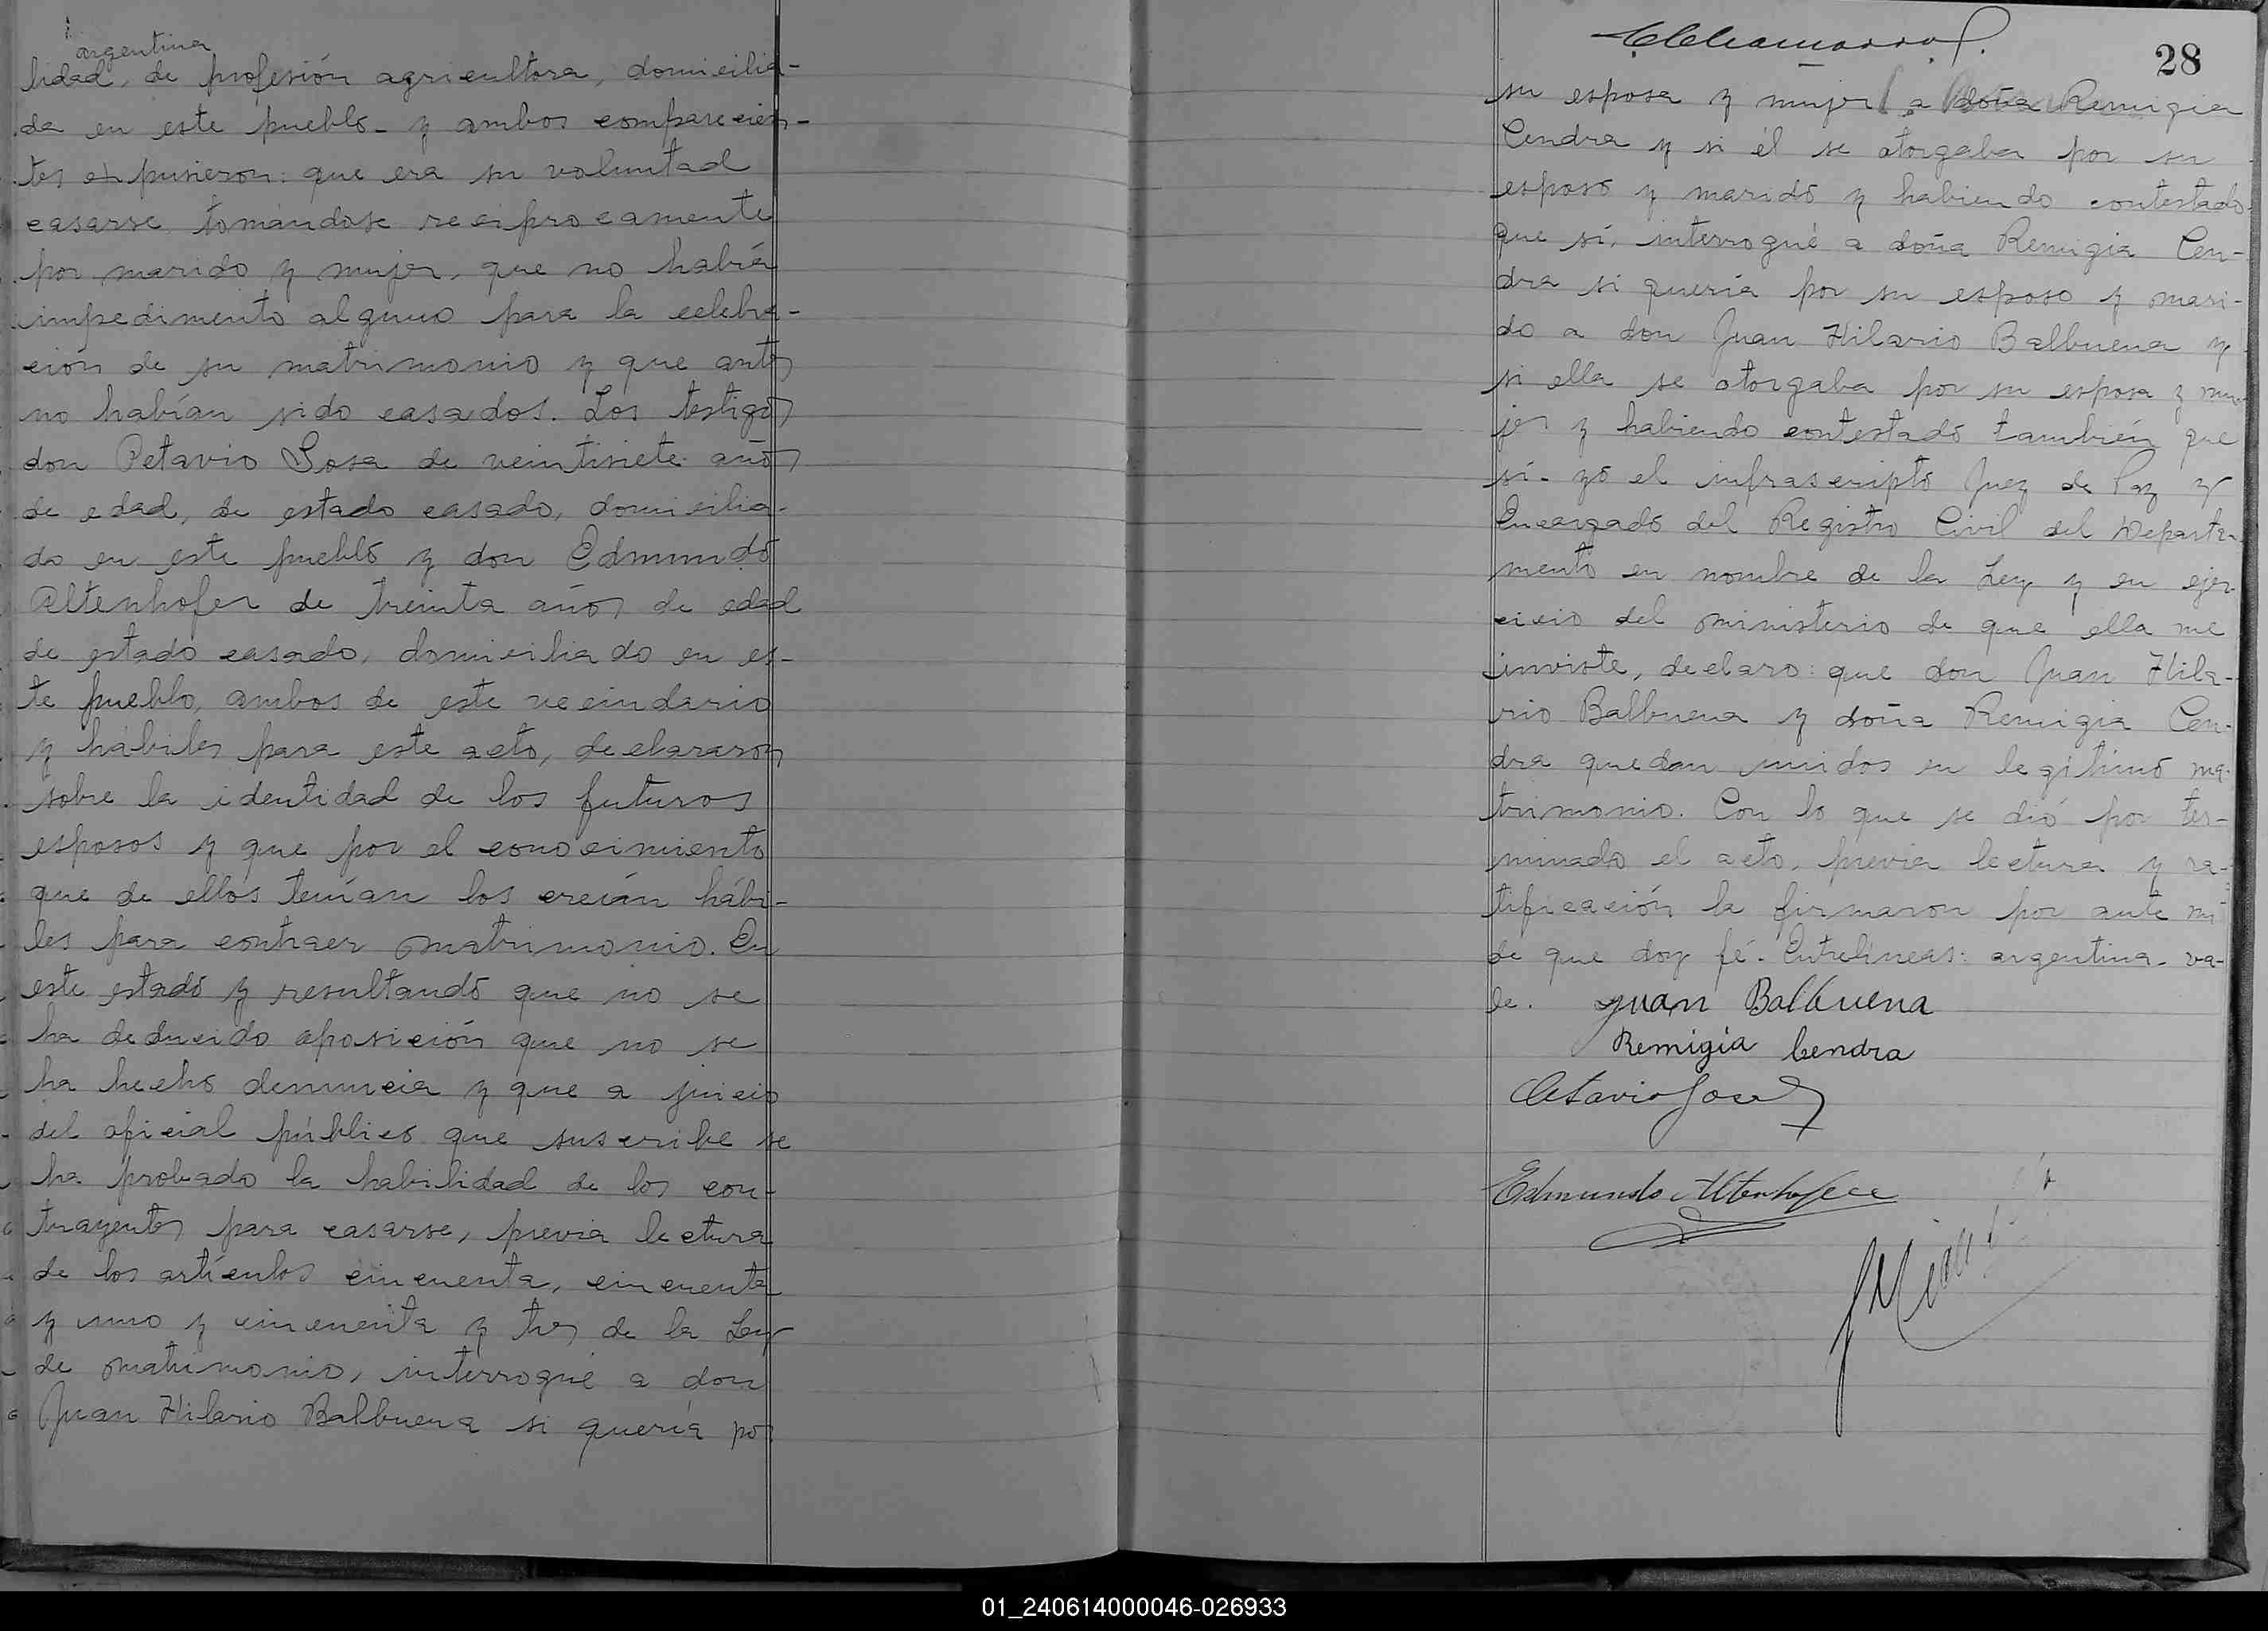 argentina
lidad, de profesión agricultora, domicilia-
da en este pueblo - y ambos comparecien-
tes expusieron: que era su voluntad
casarse tomándose recíprocamente
por marido y mujer, que no había
impedimento alguno para la celebra-
ción de su matrimonio y que antes
no habían sido casados. Los testigos
don Octavio Sosa de veintisiete años
de edad, de estado casado, domicilia-
do en este pueblo y don Edmundo
Altenhofer de treinta años de edad
de estado casado, domiciliado en es-
te pueblo, ambos de este vecindario
y hábiles para este acto, declararon
sobre la identidad de los futuros
esposos y que por el conocimiento
que de ellos tenían los creían hábi-
les para contraer matrimonio. En
este estado y resultando que no se
ha deducido oposición que no se
ha hecho denuncia y que a juicio
del oficial público que suscribe se
ha probado la habilidad de los con-
trayentes para casarse, previa lectura
de los artículos cincuenta, cincuenta
y uno y cincuenta y tres de la Ley
de matrimonio, interrogué a don
Juan Hilario Balbuena si quería por
28
su esposa y mujer a doña Remigia
Cendra y si él se otorgaba por su
esposo y marido y habiendo contestado
que sí, interrogué a doña Remigia Cen-
dra si quería por su esposo y mari-
do a don Juan Hilario Balbuena y
si ella se otorgaba por su esposa y mu-
jer y habiendo contestado también que
sí - yo el infrascripto Juez de Paz y
Encargado del Registro Civil del Departa-
mento en nombre de la Ley y en ejer-
cicio del ministerio de que ella me
inviste, declaro: que don Juan Hila-
rio Balbuena y doña Remigia Cen-
dra quedan unidos en legítimo ma-
trimonio. Con lo que se dió por ter-
minado el acto, previa lectura y ra-
tificación la firmaron por ante mí
de que doy fé. Entrelíneas: argentina - va-
le. Juan Balbuena
Remigia Cendra
Octavio Sosa
Edmundo Altenhofer
01_240614000046-026933